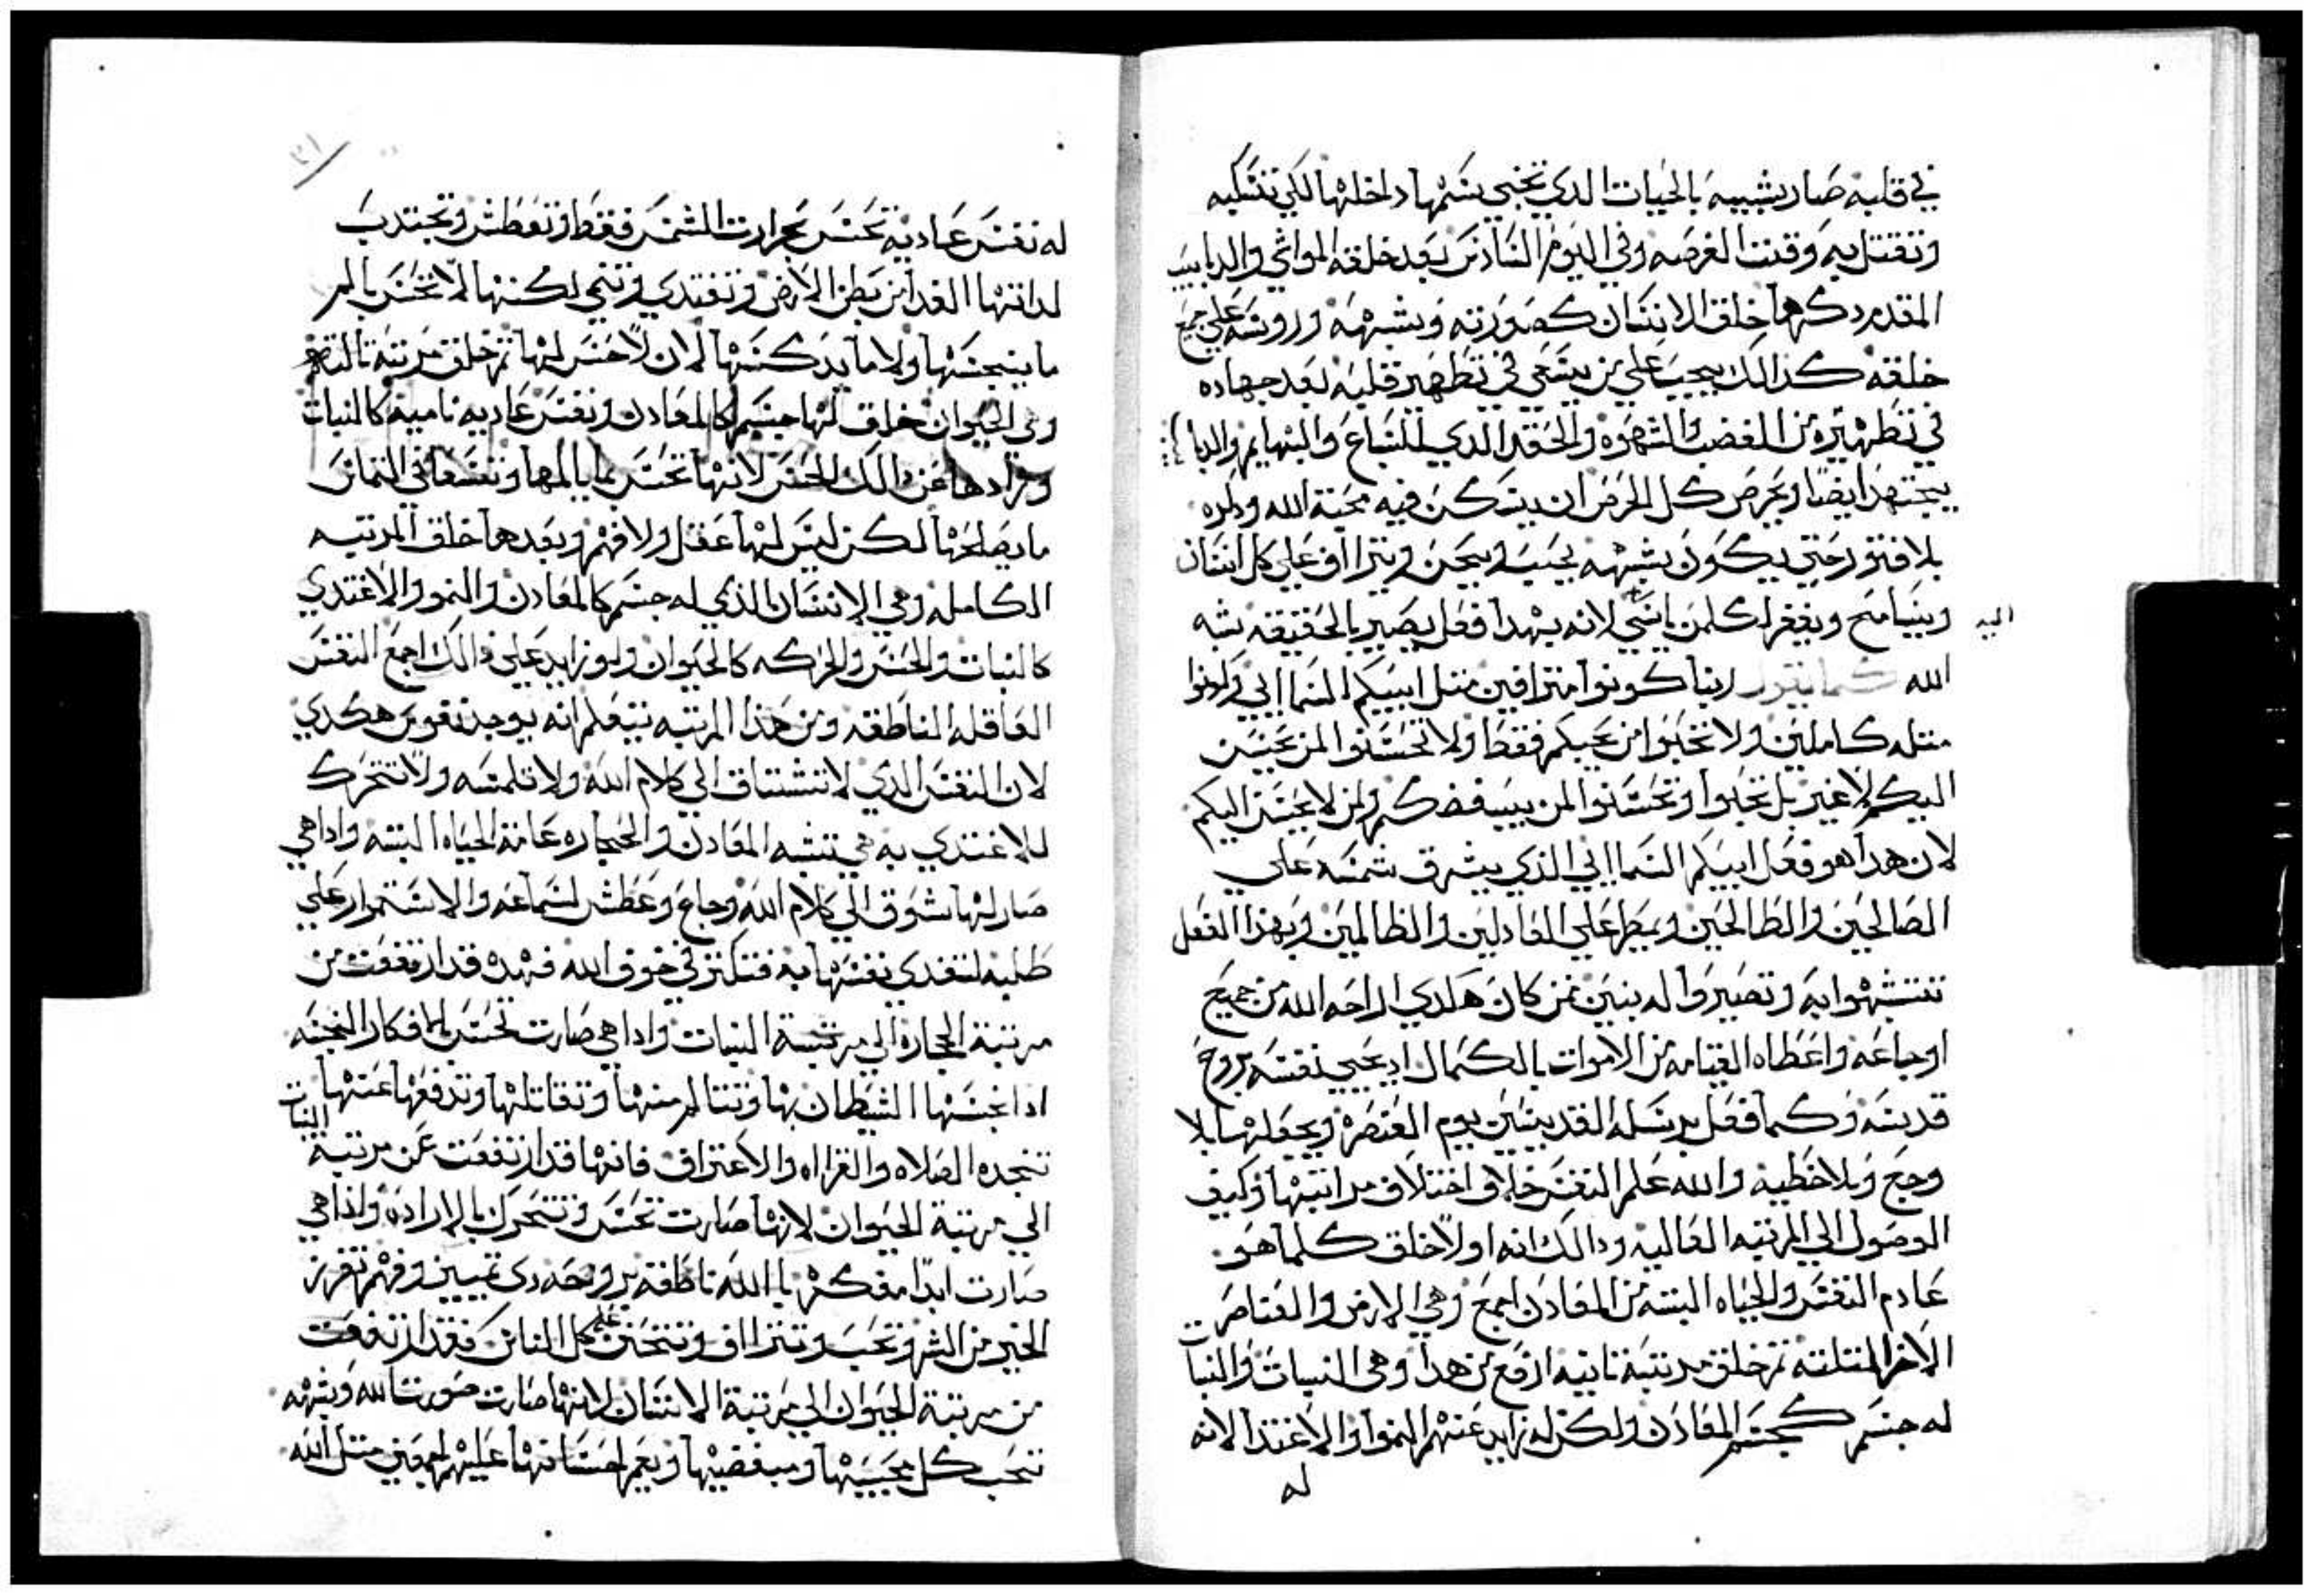 في قلبه صار شبيه بالحيات الدي تخبي سمها داخلها لكي تنكيه
وتقتل به وقت الفرصه وفي اليوم السادس بعد خلقة المواشي والدبايب
المقدم دكرهم خلق الانسان كصورته وشبهه وروسه علي جميع
خلقته كدالك يجب علي من يسعي في تطهير قلبه بعد جهاده
في تطهيره من الغضب والشهوة والحقد الدي للسباع والبهايم والدبا
يجتهد ايضا ويحرص كل الحرص ان يسكن فيه محبة الله ودكره
بلا فتور حتي يكون بشبهه يحب ويحن ويتراف علي كل انسان
ويسامح ويغفر لكلمن ياسي لانه بهدا فعل يصير بالحقيقه بشبه
اليه
الله كما يقول ربنا كونوا مترافين متل ابيكم السمااني وكونوا
متله كاملين ولا تحبوا من يحبكم فقط ولا تحسنوا لمن يحسن
اليكم لا غير بل تحبوا وتحسنوا لمن يبغضكم ولمن لا يحسن اليكم
لان هدا هو فعل ابيكم السمااني الذي يشرق شمسه علي
الصالحين والطالحين ويمطر علي العادلين والظالمين وبهذا الفعل
تتشبهوا به وتصيروا له بنين فمن كان هكدي اراحه الله من جميع
اوجاعه واعطاه القيامه من الاموات بالكمال اد يحيي نفسه بروح
قدسه وكما فعل برسله القديسين يوم العنصره ويجعلها بلا
وجع وبلا خطيه والله علم النفس خلاف اختلاف مراتبها وكيف
الوصول الي المرتبه العاليه ودالك انه اولا خلق كلما هو
عادم النفس والحياه البته من المعادن اجمع وهي الارض والعناصر
الاخر التلته تم خلق مرتبة تانيه ارفع من هدا وهي النبات والنبات
له جسم كجسم المعادن ولكن له زايد عنهم النموا والاغتدا لانه
له
له نفس عادية تحس بحرارت الشمس فقط وتعطش وتجتدب
لداتها الغدا من بطن الارض وتغتدي وتنمي لكنها لا تحس بالم
ما ينجسها ولا ما يدكسها لان لا حس لها تم خلق مرتبة تالتة
وهي الحيوان خلق لها جسم كالمعادن ونفس غاديه ناميه كالنبات
وزادها عن دالك الحس لانها تحس بما يالمها وتسعا في التماس
ما يصلحها لكن ليس لها عقل ولا فهم وبعدها خلق المرتبه
الكامله وهي الانسان الذي له جسم كالمعادن والنمو والاغتدي
كالنبات والحس والحركه كالحيوان وله زايد علي دالك اجمع النفس
العاقله الناطقه ومن هذا المرتبه نتعلم انه يوجد نفوس هكدي
لان النفس الدي لا تشتاق الي كلام الله ولا تلمسه ولا تتحرك
للاغتدي به هي تشبه المعادن والحجاره عادمة الحياه البته وادا هي
صار لها شوق الي كلام الله وجاع وعطش لسماعه والاستمرار علي
طلبه لتغدي نفسها به فتكنز في خوف الله فهده قد ارتفعت من
مرتبة الحجاره الي مرتبة النبات وادا هي صارت تحس بالافكار النجسه
ادا نجسها الشيطان بها وتتالم منها وتقاتلها وتدفعها عنها
تنجده الصلاه والقرااه والاعتراف فانها قد ارتفعت عن مرتبة النبات
الي مرتبة الحيوان لانها صارت تحس وتتحرك بالاراده واذا هي
صارت ابدا مفكره با الله ناطقه بروحه دي تمييز وفهم تفرز
الخير من الشر وتحب وتتراف وتتحنن علي كل الناس فقد ارتفعت
من مرتبة الحيوان الي مرتبة الانسان لانها صارت صورت الله وشبهه
تحب كل محبيها ومبغضيها ويعم احسانها عليهم اجمعين متل الله